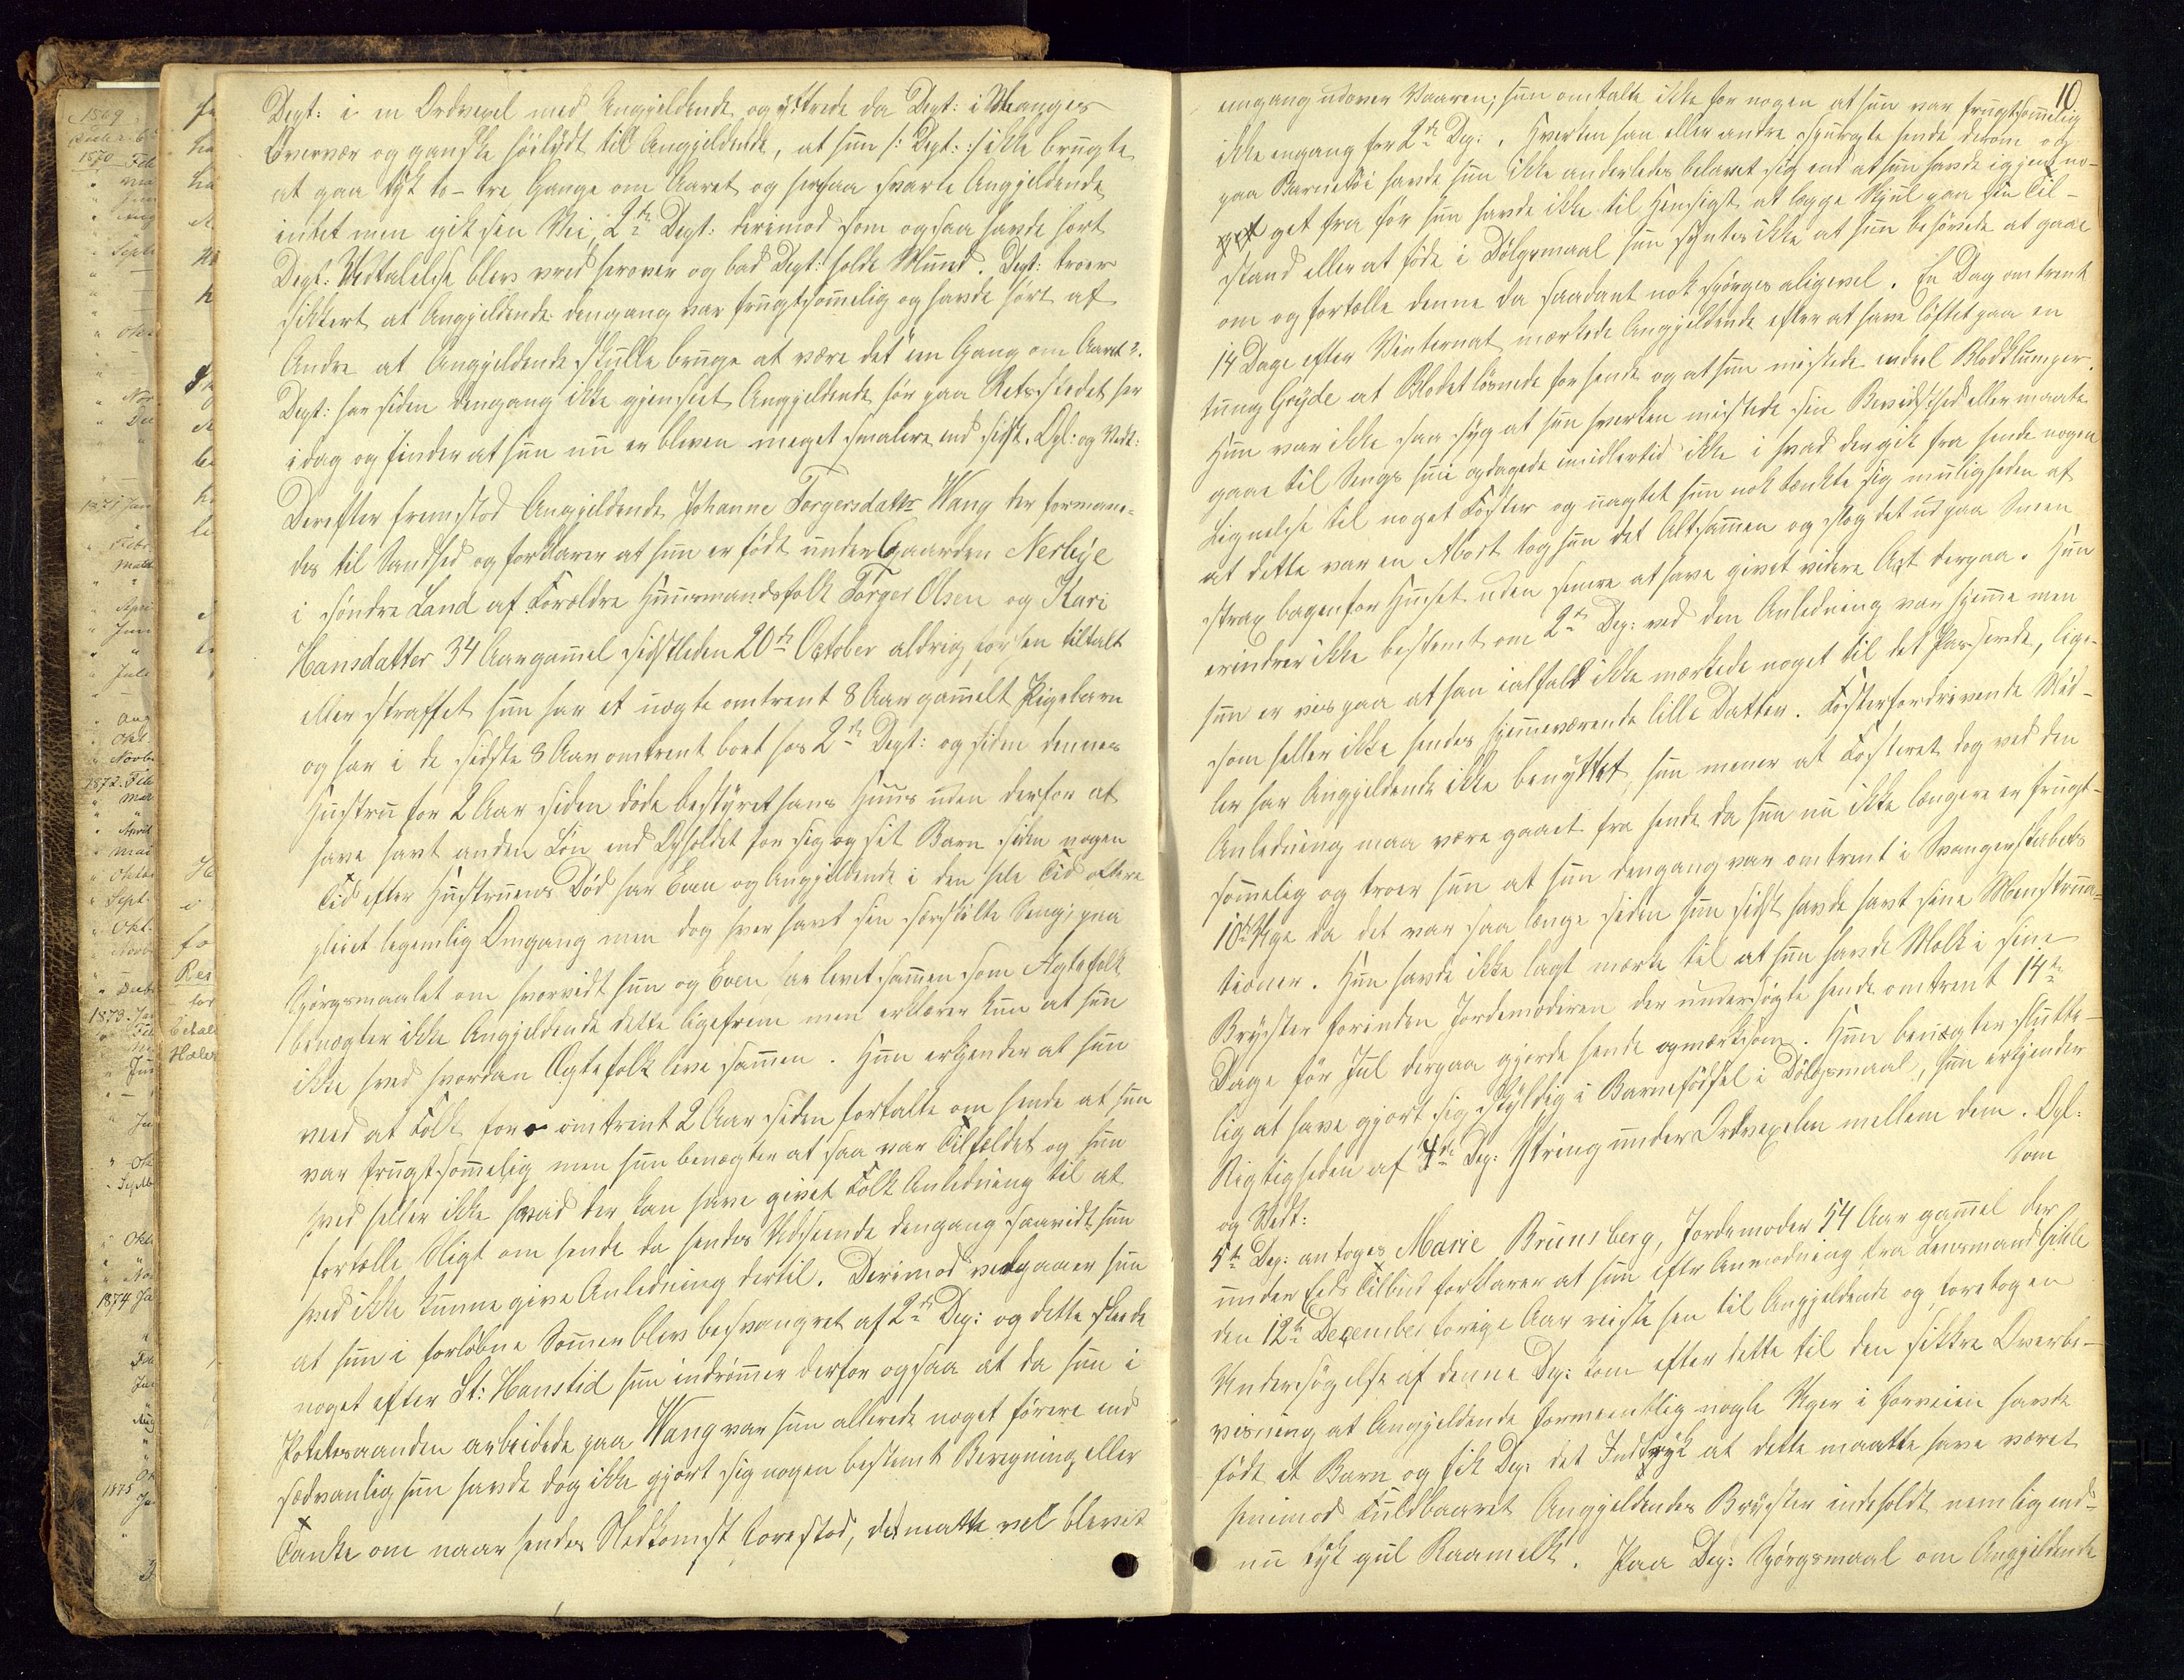 Dept: i en Ordvexel med Angjeldende og yttrede da Dept: i Manges
Overvær og ganske höilydt till Angjeldende, at hun /: Dept: :/ ikke brugte
at gaa tyk to - tre Gange om Aaret og herpaa svarte Angjeldende
intet men gik sin Vei, 2de Dept: derimod som ogsaa havde hört
Dept: Udtalelse blev vred herover og bad Dept: holde Mund. Dept: troer
sikkert at Angjeldende dengang var frugtsommelig og havde hört af
Andre at Angjeldende skulle bruge at være det een Gang om Aaret.
Dept: har siden dengang ikke gjenseet Angjeldende för paa Retsstedet her
idag og finder at hun nu er bleven meget smalere end sidst. Opl: og Vedt:
Derefter fremstod Angjeldende Johanne Torgersdatter Wang der formane-
des til Sandhed og forklarer at hun er födt under Gaarden Nerbye
i söndre Land af Forældre Huusmandsfolk Torger Olsen og Kari
Hansdatter 34 Aar gammel sidstleden 20de October aldrig för hen tiltalt
eller straffet hun har et uægte omtrent 8 Aar gammelt Pigebarn
og har i de sidste 8 Aar omtrent boet hos 2de Dept: og siden dennes
Hustru for 2 Aar siden döde bestyret hans Huus uden derfor at
have havt anden Lön end Opholdet for sig og sit Barn siden nogen
Tid efter Hustruens Död har Even og Angjeldende i den hele Tid oftere
pleiet legemlig Omgang men dog hver havt sin særskilte Seng; paa
Spörgsmaalet om hvorvidt hun og Even har levet sammen som Ægtefolk
benægter ikke Angjeldende dette ligefrem men erklærer kun at hun
ikke hved hvordan Ægtefolk leve sammen. Hun erkjender at hun
veed at Folk for omtrent 2 Aar siden fortalte om hende at hun
var frugtsommelig men hun benægter at saa var Tilfeldet og hun
hved heller ikke hvad der kan have givet Folk Anledning til at
fortelle Sligt om hende da hendes Udseende dengang saavidt hun
hved ikke kunne give Anledning dertil. Derimod vedgaaer hun
at hun i forlöbne Sommer blev besvangret af 2de Dep: og dette skede
noget efter St: Hanstid hun indrömmer derfor ogsaa at da hun i
Potetesaanden arbeidede paa Wang var hun allerede noget förere end
sædvanlig hun havde dog ikke gjort sig nogen bestemt Beregning eller
Tanke om naar hendes Nedkomst forestod, det maatte vel blevet
10
engang udover Vaaren; hun omtalte ikke for nogen at hun var frugtsommelig
ikke engang for 2de Dep:. Hverken han eller andre spurgte hende derom og
paa Barnetöi havde hun ikke anderledes belavet sig end at hun havde igjen no-
get fra för hun havde ikke til Hensigt at lægge Skjul paa sin Til-
stand eller at föde i Dölgsmaal hun syntes ikke at hun behövede at gaae
om og fortælle denne da saadant nok spörges aligevel. En Dag omtrent
14 Dage efter Vinternat mærkede Angjeldende efter at have löftet paa en
tung Gryde at Blodet lösnede for hende og at hun mistede endeel Blodklumper.
Hun var ikke saa syg at hun hverken mistede sin Bevidsthed eller maatte
gaae til Sengs hun opdagede imidlertid ikke i hvad der gik fra hende nogen
Lignelse til noget Foster og uagtet hun nok tænkte sig muligheden af
at dette var en Abort tog hun det Altsammen og slog det ud paa Sneen
strax bagenfor Huset uden senere at have givet videre Agt derpaa. Hun
erindrer ikke bestemt om 2de Dep: ved den Anledning var hjemme men
hun er vis paa at han ialfald ikke mærkede noget til det Passerede, lige-
som heller ikke hendes hjemmeværende lille Datter. Fosterfordrivende Mid-
ler har Angjeldende ikke benyttet, hun mener at Fosteret dog ved den
Anledning maa være gaaet fra hende da hun nu ikke længere er frugt-
sommelig og troer hun at hun dengang var omtrent i Svangerskabets
10de Uge da det var saa længe siden hun sidst havde havt sine Menstrua-
tioner. Hun havde ikke lagt mærke til at hun havde Melk i sine
Bryster forinden Jordemoderen der undersögte hende omtrent 14de
Dage för Jul derpaa gjorde hende opmærksom. Hun benægter slutte-
lig at have gjort sig skyldig i Barnefödsel i Dölgsmaal, hun erkjender
Rigtigheden af 4de Dep: Yttring under Ordvexelen mellem dem. Opl:
og Vedt: Som
5te Dep: antoges Marie Brunsberg, Jordemoder 54 Aar gammel der
under Eds Tilbud forklarer at hun efter Anmodning fra Lensmand Hille
den 12te December forrige Aar reiste hen til Angjeldende og foretog en
Undersögelse af denne Dep: kom efter dette til den sikkre Overbe-
visning at Angjeldende formentlig nogle Uger i forveien havde
födt et Barn og fik Dep: det Indtryk at dette maatte have været
henimod Fuldbaaret Angjeldendes Bryster indeholdt nemlig end-
nu tyk gul Raamelk. Paa Dep: Spörgsmaal om Angjeldende